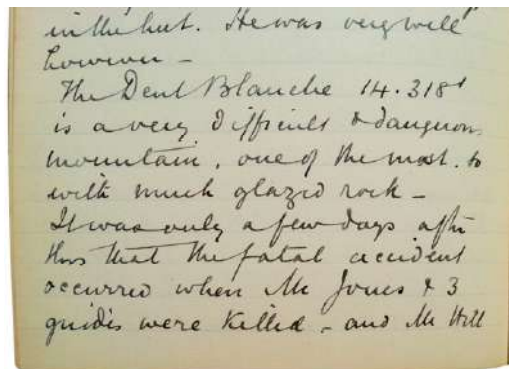 in the hut. He was very well
however –
The Dent Blanche 14.318'
is a very difficult & dangerous
mountain, one of the most. to
with much glazed rock –
It was only a few days after
this that the fatal accident
occurred when Mr Jones & 3
guides were killed – and Mr Hill